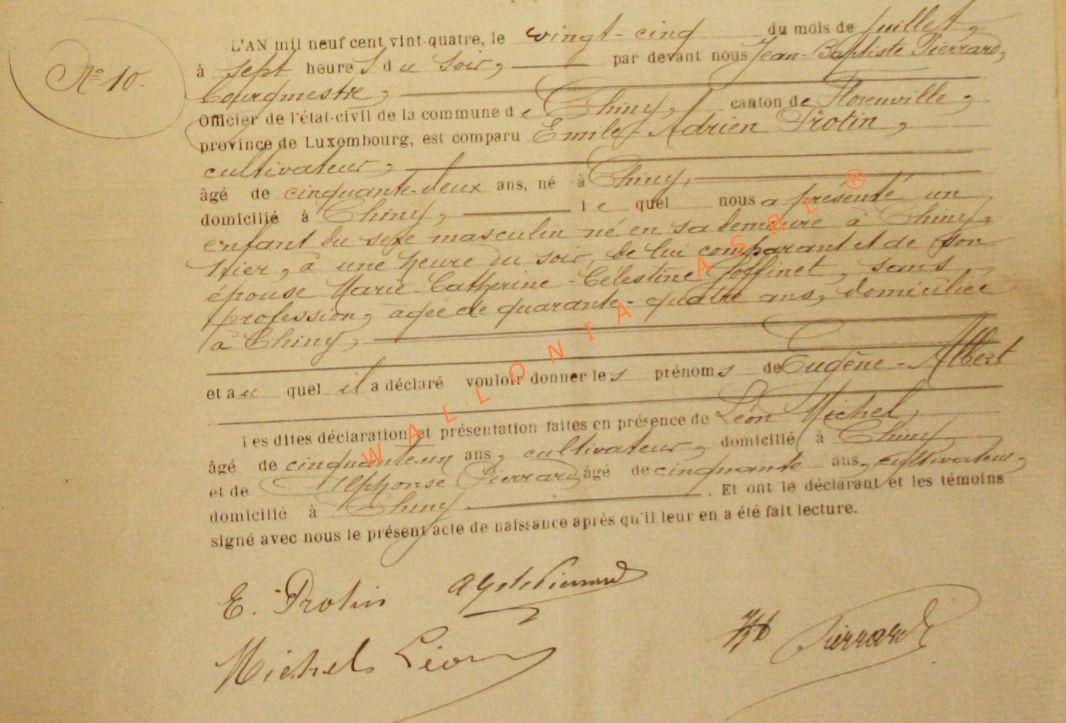 N° 10.
L'AN mil neuf cent vint-quatre, le vingt-cinq du mois de juillet,
à sept heures du soir, par devant nous Jean-Baptiste Pierrard,
Bourgmestre,
Officier de l'état-civil de la commune de Chiny, canton de Florenville,
province de Luxembourg, est comparu Emile-Adrien Protin,
cultivateur,
âgé de cinquante-deux ans, né à Chiny,
domicilié à Chiny, le quel nous a présenté un
enfant du sexe masculin né en sa demeure à Chiny,
hier, à une heure du soir, de lui comparant et de son
épouse Marie-Catherine-Célestine Goffinet, sans
profession, agée de quarante-quatre ans, domiciliée
à Chiny,
et au quel il a déclaré vouloir donner les prénoms de Eugène-Albert
Les dites déclaration et présentation faites en présence de Léon Michel,
âgé de cinquante-un ans, cultivateur, domicilié à Chiny,
et de Alphonse Pierrard, âgé de cinquante ans, cultivateur,
domicilié à Chiny. Et ont le déclarant et les témoins
signé avec nous le présent acte de naissance après qu'il leur en a été fait lecture.
E. Protin
Michel Léon
Pierrard
WALLONIA ASBL ®